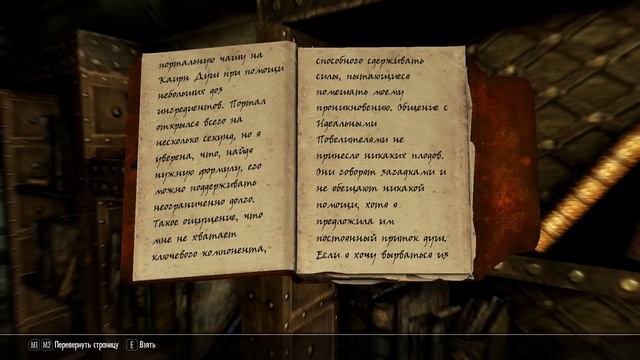 портальную чашу на
Каирн Душ при помощи
небольших доз
ингредиентов. Портал
открылся всего на
несколько секунд, но я
уверена, что, найдя
нужную формулу, его
можно поддерживать
неограниченно долго.
Такое ощущение, что
мне не хватает
ключевого компонента,
способного сдерживать
силы, пытающиеся
помешать моему
проникновению. Общение с
Идеальными
Повелителями не
принесло никаких плодов.
Они говорят загадками и
не обещают никакой
помощи, хотя я
предложила им
постоянный приток душ.
Если я хочу вырваться из
M1 M2 Перевернуть страницу E Взять